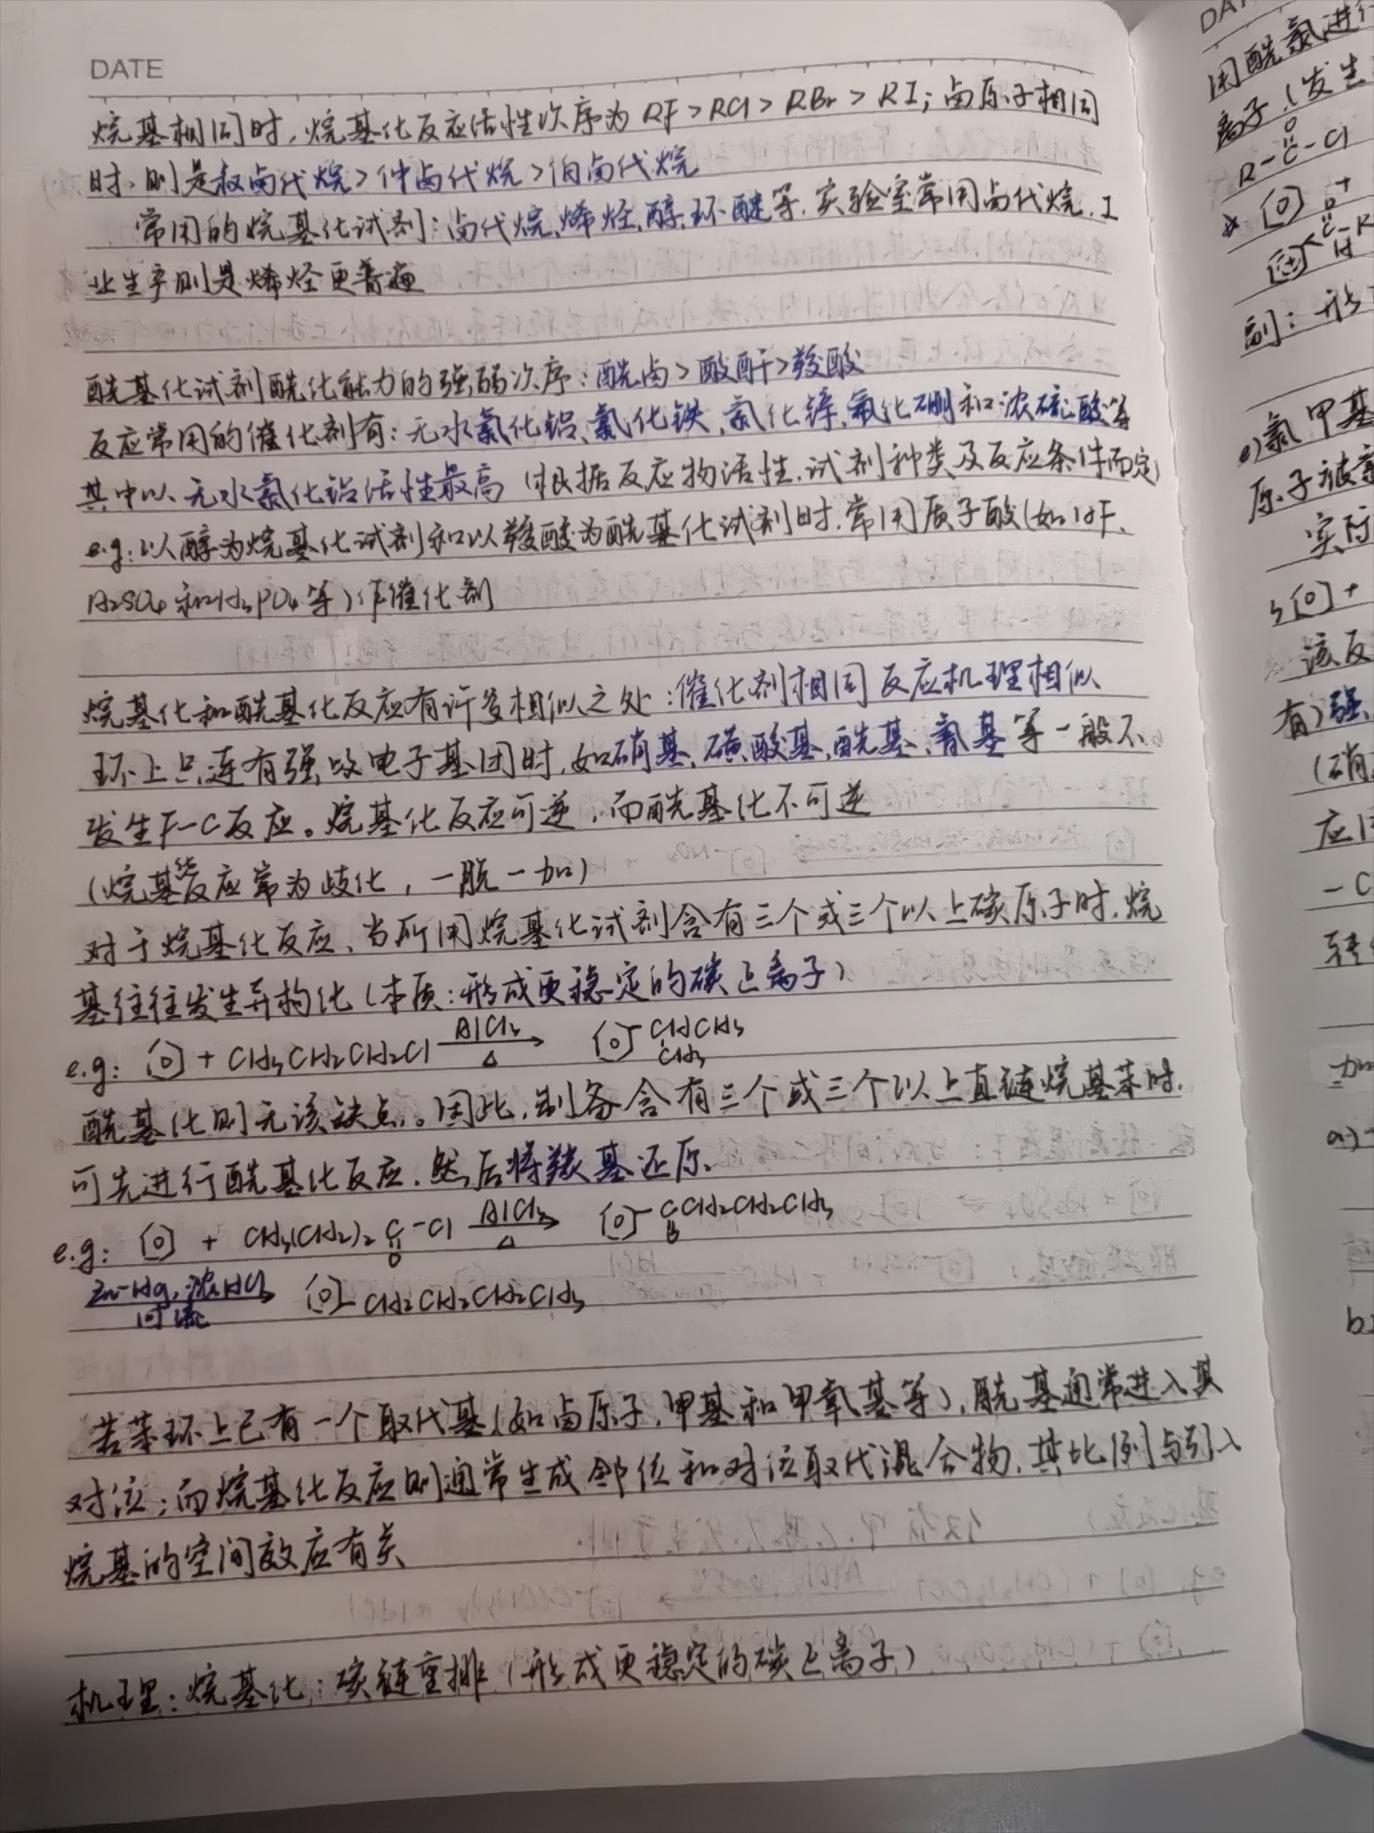 DATE
烷基相同时，烷基化反应活性次序为 RF > RCl > RBr > RI；卤原子相同
时，则是叔卤代烷 > 仲卤代烷 > 伯卤代烷
常用的烷基化试剂：卤代烷、烯烃、醇、环醚等，实验室常用卤代烷，工
业生产则是烯烃更普遍
酰基化试剂酰化能力的强弱次序：酰卤 > 酸酐 > 羧酸
反应常用的催化剂有：无水氯化铝、氯化铁、氯化锌、氟化硼和浓硫酸等
其中以无水氯化铝活性最高（根据反应物活性，试剂种类及反应条件而定）
e.g：以醇为烷基化试剂和以羧酸为酰基化试剂时，常用质子酸（如HF、
H₂SO₄ 和 H₃PO₄ 等）作催化剂
烷基化和酰基化反应有许多相似之处：催化剂相同 反应机理相似
环上只连有强吸电子基团时，如硝基，磺酸基，酰基，氰基等一般不
发生F-C反应。烷基化反应可逆，而酰基化不可逆
（烷基化反应常为歧化，一脱一加）
对于烷基化反应，当所用烷基化试剂含有三个或三个以上碳原子时，烷
基往往发生异构化（本质：形成更稳定的碳正离子）
e.g： + CH₃CH₂CH₂Cl AlCl₃ △ CHCH₃ CH₃
酰基化则无该缺点。因此，制备含有三个或三个以上直链烷基苯时，
可先进行酰基化反应，然后将羰基还原。
e.g： + CH₃(CH₂)₂ C -Cl O AlCl₃ △ CCH₂CH₂CH₃ O
Zn-Hg，浓HCl 回流 CH₂CH₂CH₂CH₃
若苯环上已有一个取代基（如卤原子，甲基和甲氧基等），酰基通常进入其
对位；而烷基化反应则通常生成邻位和对位取代混合物，其比例与引入
烷基的空间效应有关
机理：烷基化：碳链重排（形成更稳定的碳正离子）
用酰氯进行
离子（发生
R-C-Cl
副：形
e)氯甲基
原子被
实际
该反
有）强
（硝
应
-C
a)
b